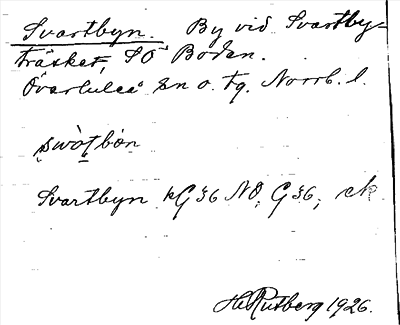 Svartbyn. By vid Svartby-
träsket, SO Boden.
Överluleå sn o. tg. Norrb. l.
Svartbyn kG36 NO; G36; ek
H Rutberg 1926.